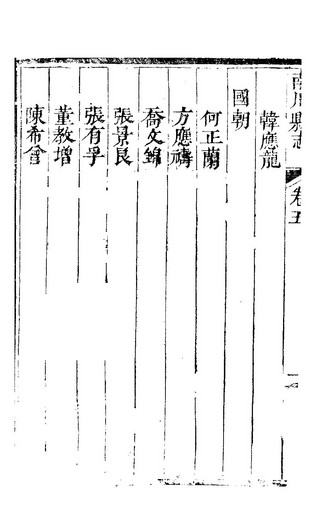 南川縣志
卷五
韓應龍
國朝
何正蘭
方應禱
喬文錦
張景良
張有孚
董教增
陳希曾